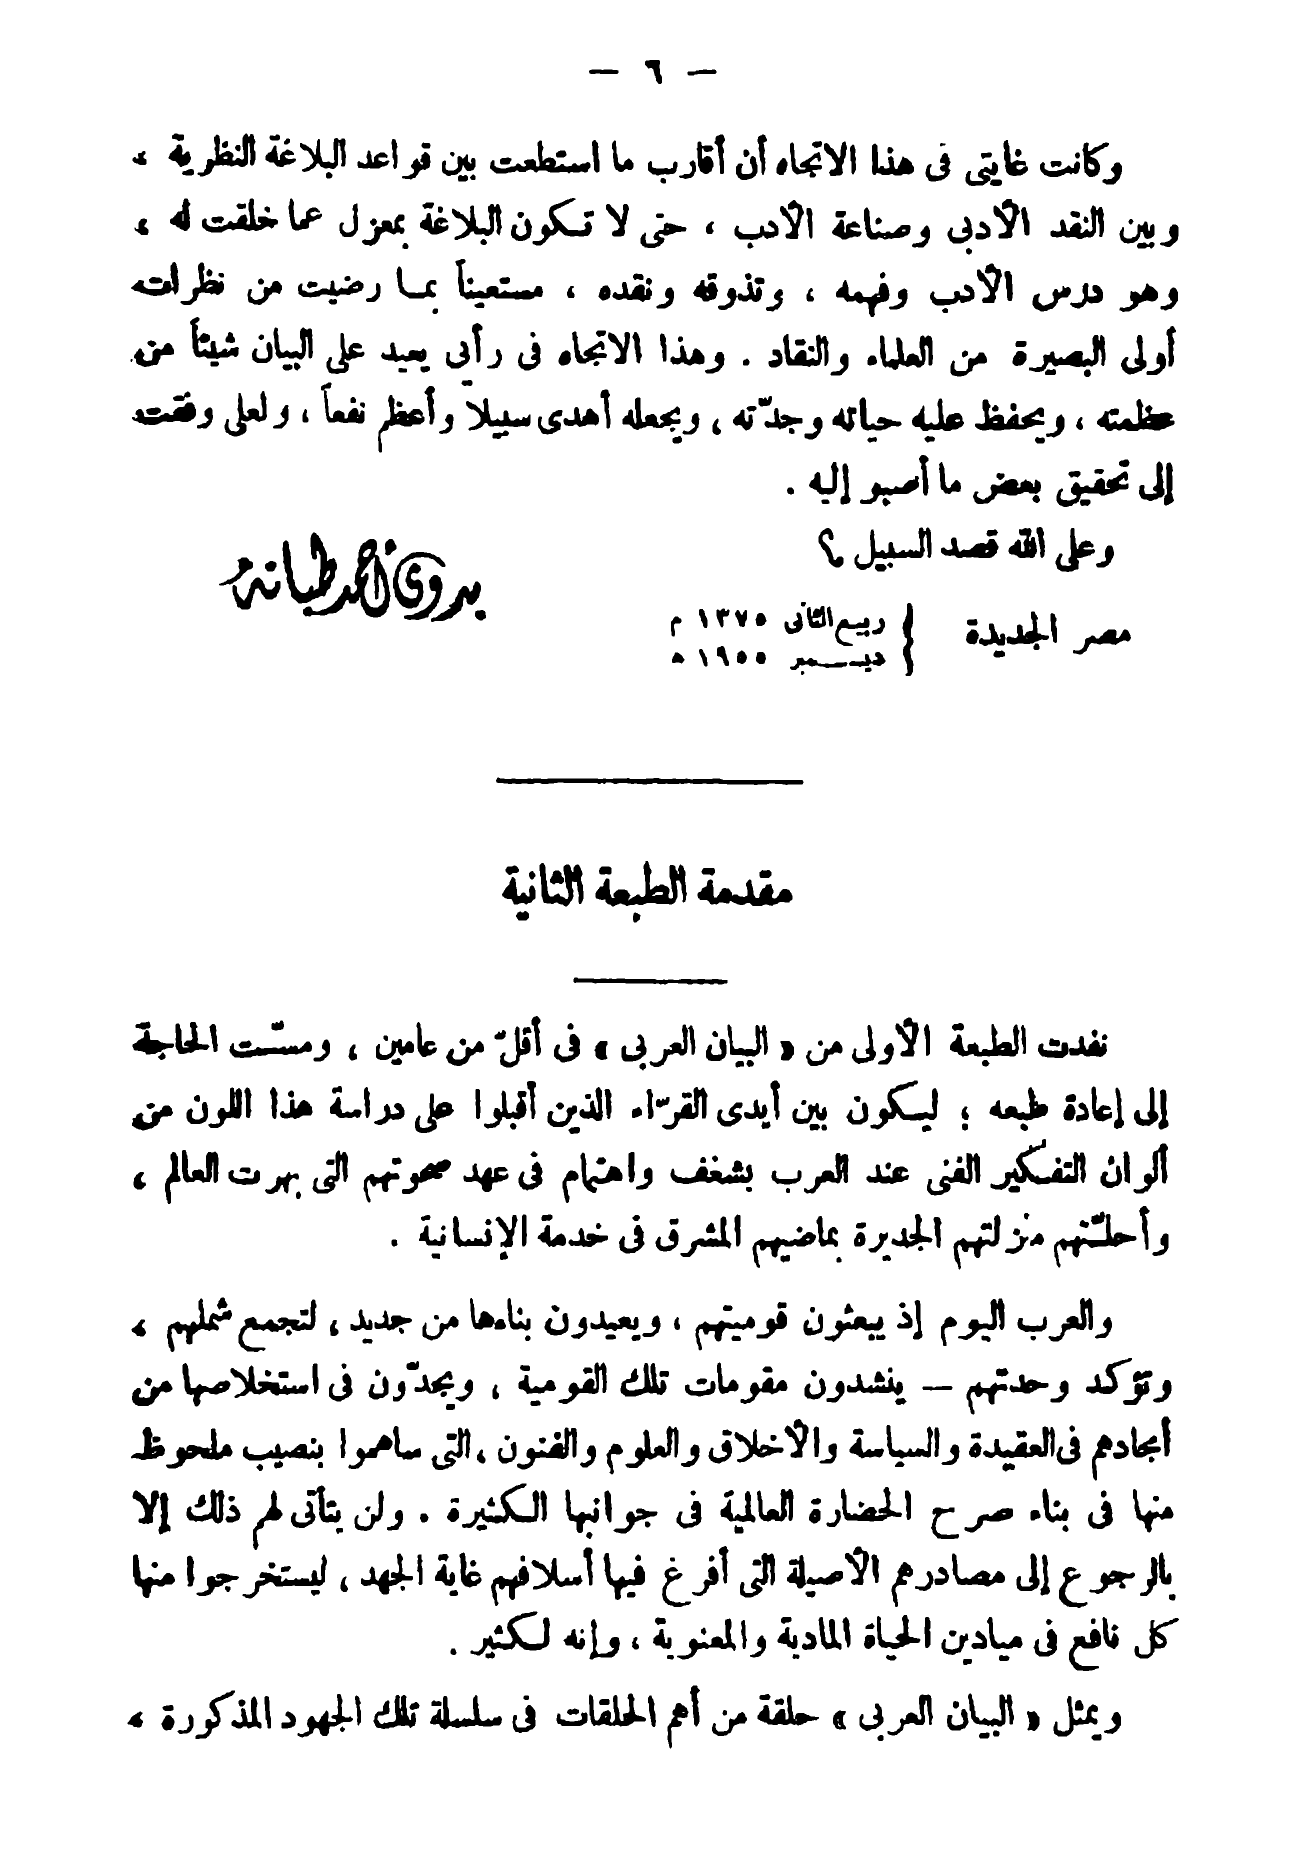 — ٦ —
وكانت غايتى فى هذا الاتجاه أن أقارب ما استطعت بين قواعد البلاغة النظرية ،
وبين النقد الأدبى وصناعة الأدب ، حتى لا تكون البلاغة بمعزل عما خلقت له ،
وهو درس الأدب وفهمه ، وتذوقه ونقده ، مستعيناً بما رضيت من نظرات
أولى البصيرة من العلماء والنقاد . وهذا الاتجاه فى رأيى يعيد على البيان شيئاً من
عظمته ، ويحفظ عليه حياته وجدّته ، ويجعله أهدى سبيلا وأعظم نفعاً ، ولعلى وفقت
إلى تحقيق بعض ما أصبو إليه .
وعلى الله قصد السبيل ؟
بدوى أحمد طبانه
مصر الجديدة { ربيع الثانى ١٣٧٥ م
ديسمبر ١٩٥٥ ه
مقدمة الطبعة الثانية
نفدت الطبعة الأولى من « البيان العربى » فى أقلّ من عامين ، ومسّت الحاجة
إلى إعادة طبعه ؛ ليكون بين أيدى القرّاء الذين أقبلوا على دراسة هذا اللون من
ألوان التفكير الفنى عند العرب بشغف واهتمام فى عهد صحوتهم التى بهرت العالم ،
وأحلّتهم منزلتهم الجديرة بماضيهم المشرق فى خدمة الإنسانية .
والعرب اليوم إذ يبعثون قوميتهم ، ويعيدون بناءها من جديد ، لتجمع شملهم ،
وتؤكد وحدتهم — ينشدون مقومات تلك القومية ، ويجدّون فى استخلاصها من
أمجادهم فى العقيدة والسياسة والأخلاق والعلوم والفنون ، التى ساهموا بنصيب ملحوظ
منها فى بناء صرح الحضارة العالمية فى جوانبها الكثيرة . ولن يتأتى لهم ذلك إلا
بالرجوع إلى مصادرهم الأصيلة التى أفرغ فيها أسلافهم غاية الجهد ، ليستخرجوا منها
كل نافع فى ميادين الحياة المادية والمعنوية ، وإنه لكثير .
ويمثل « البيان العربى » حلقة من أهم الحلقات فى سلسلة تلك الجهود المذكورة ،